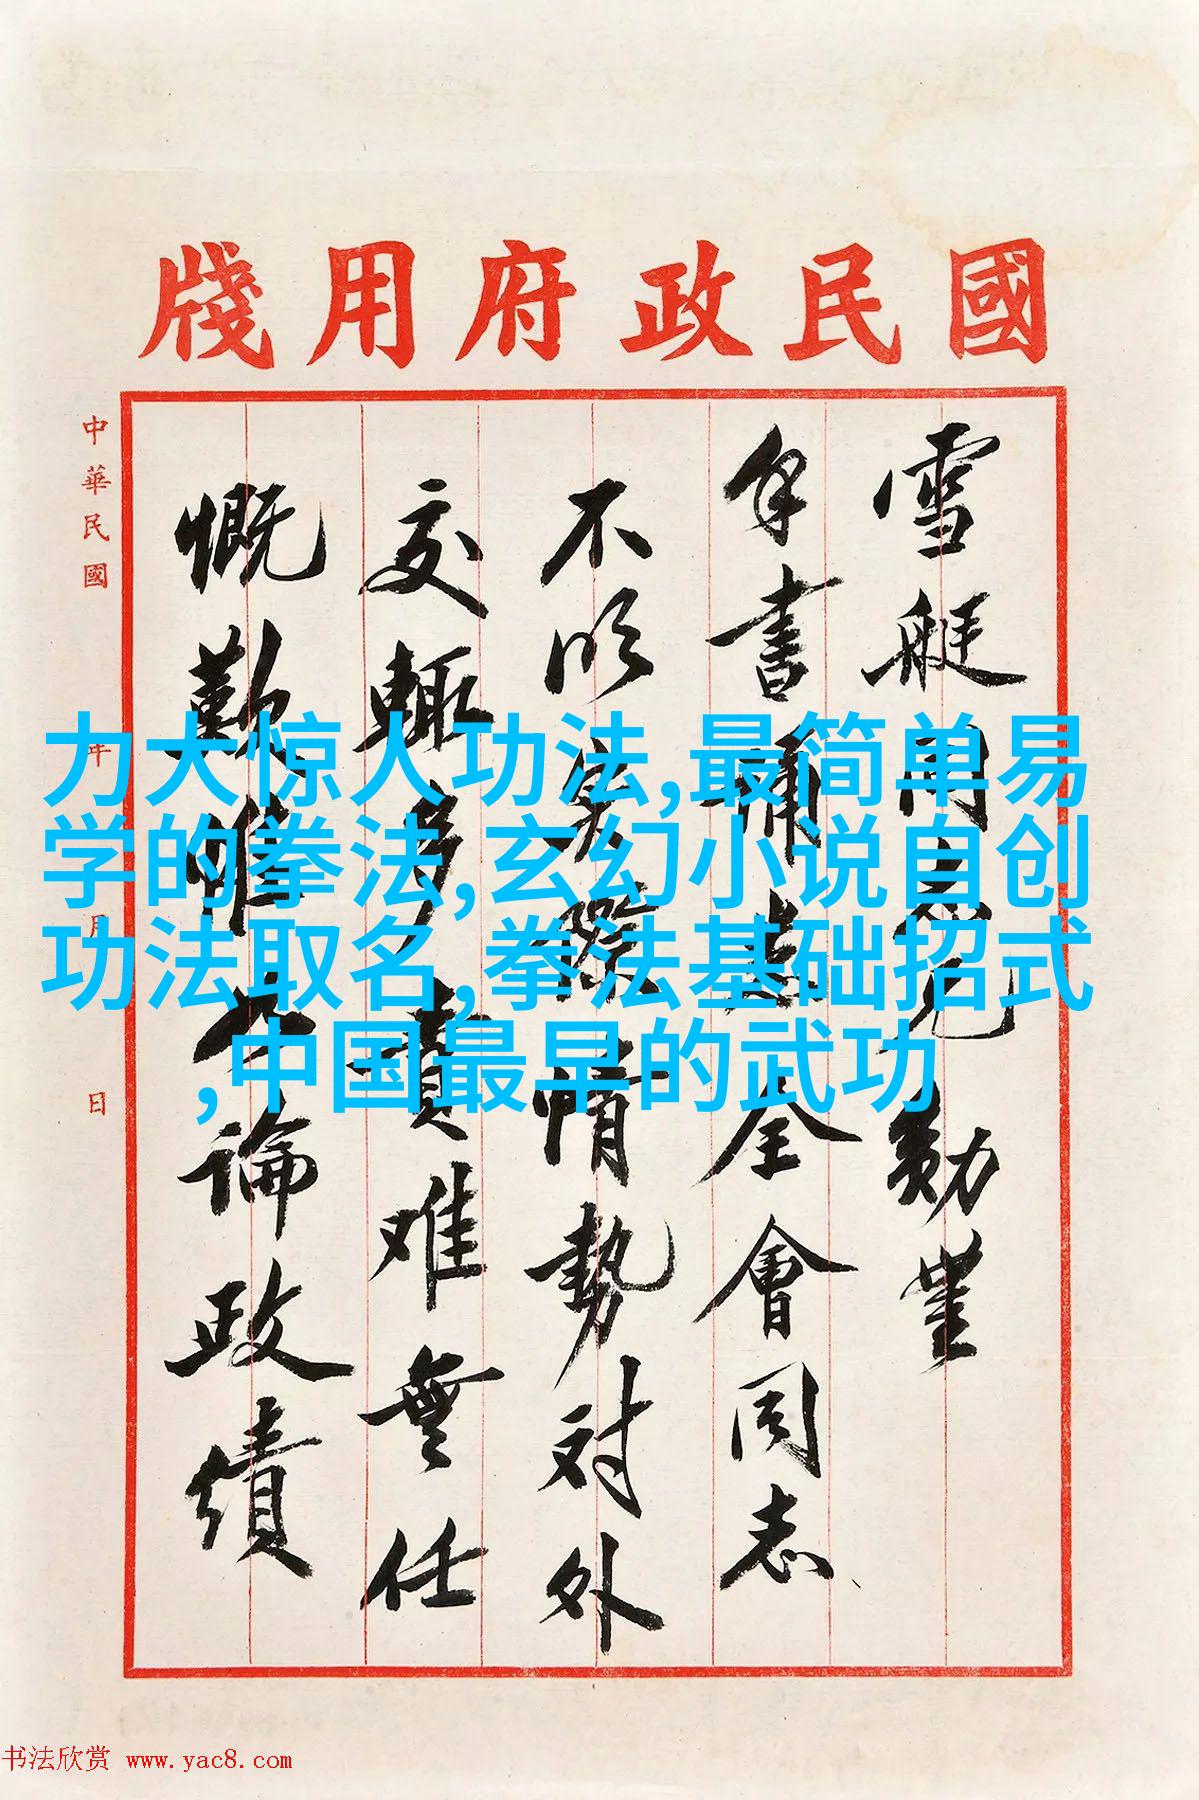 國民政府用牋
雪艇同志兄勛
手書誦悉全會同志
不明實際情勢对外
交輒多責难無任
慨歎惟公論政績
中華民國 年 月 日
力大惊人功法,最简单易
学的拳法,玄幻小说自创
功法取名,拳法基础招式
,中国最早的武功
书法欣赏 www.yac8.com